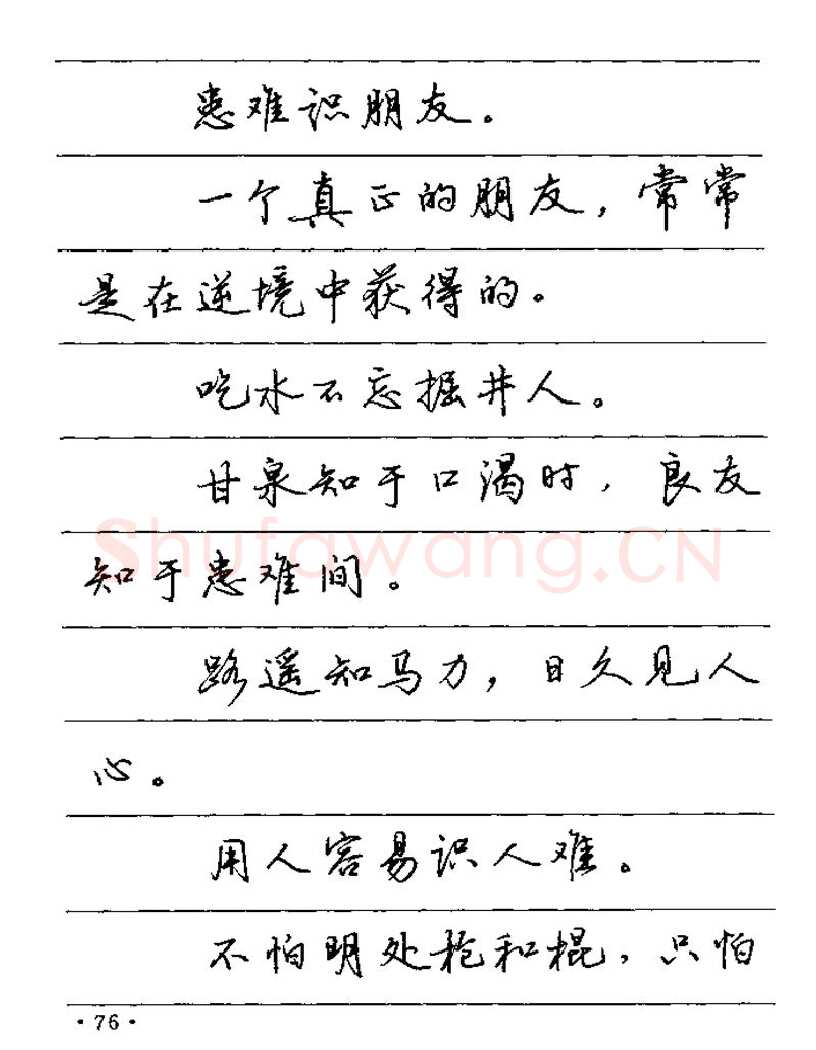 患难识朋友。
一个真正的朋友，常常
是在逆境中获得的。
吃水不忘掘井人。
甘泉知于口渴时，良友
知于患难间。
Shufawang.CN
路遥知马力，日久见人
心。
用人容易识人难。
不怕明处枪和棍，只怕
·76·